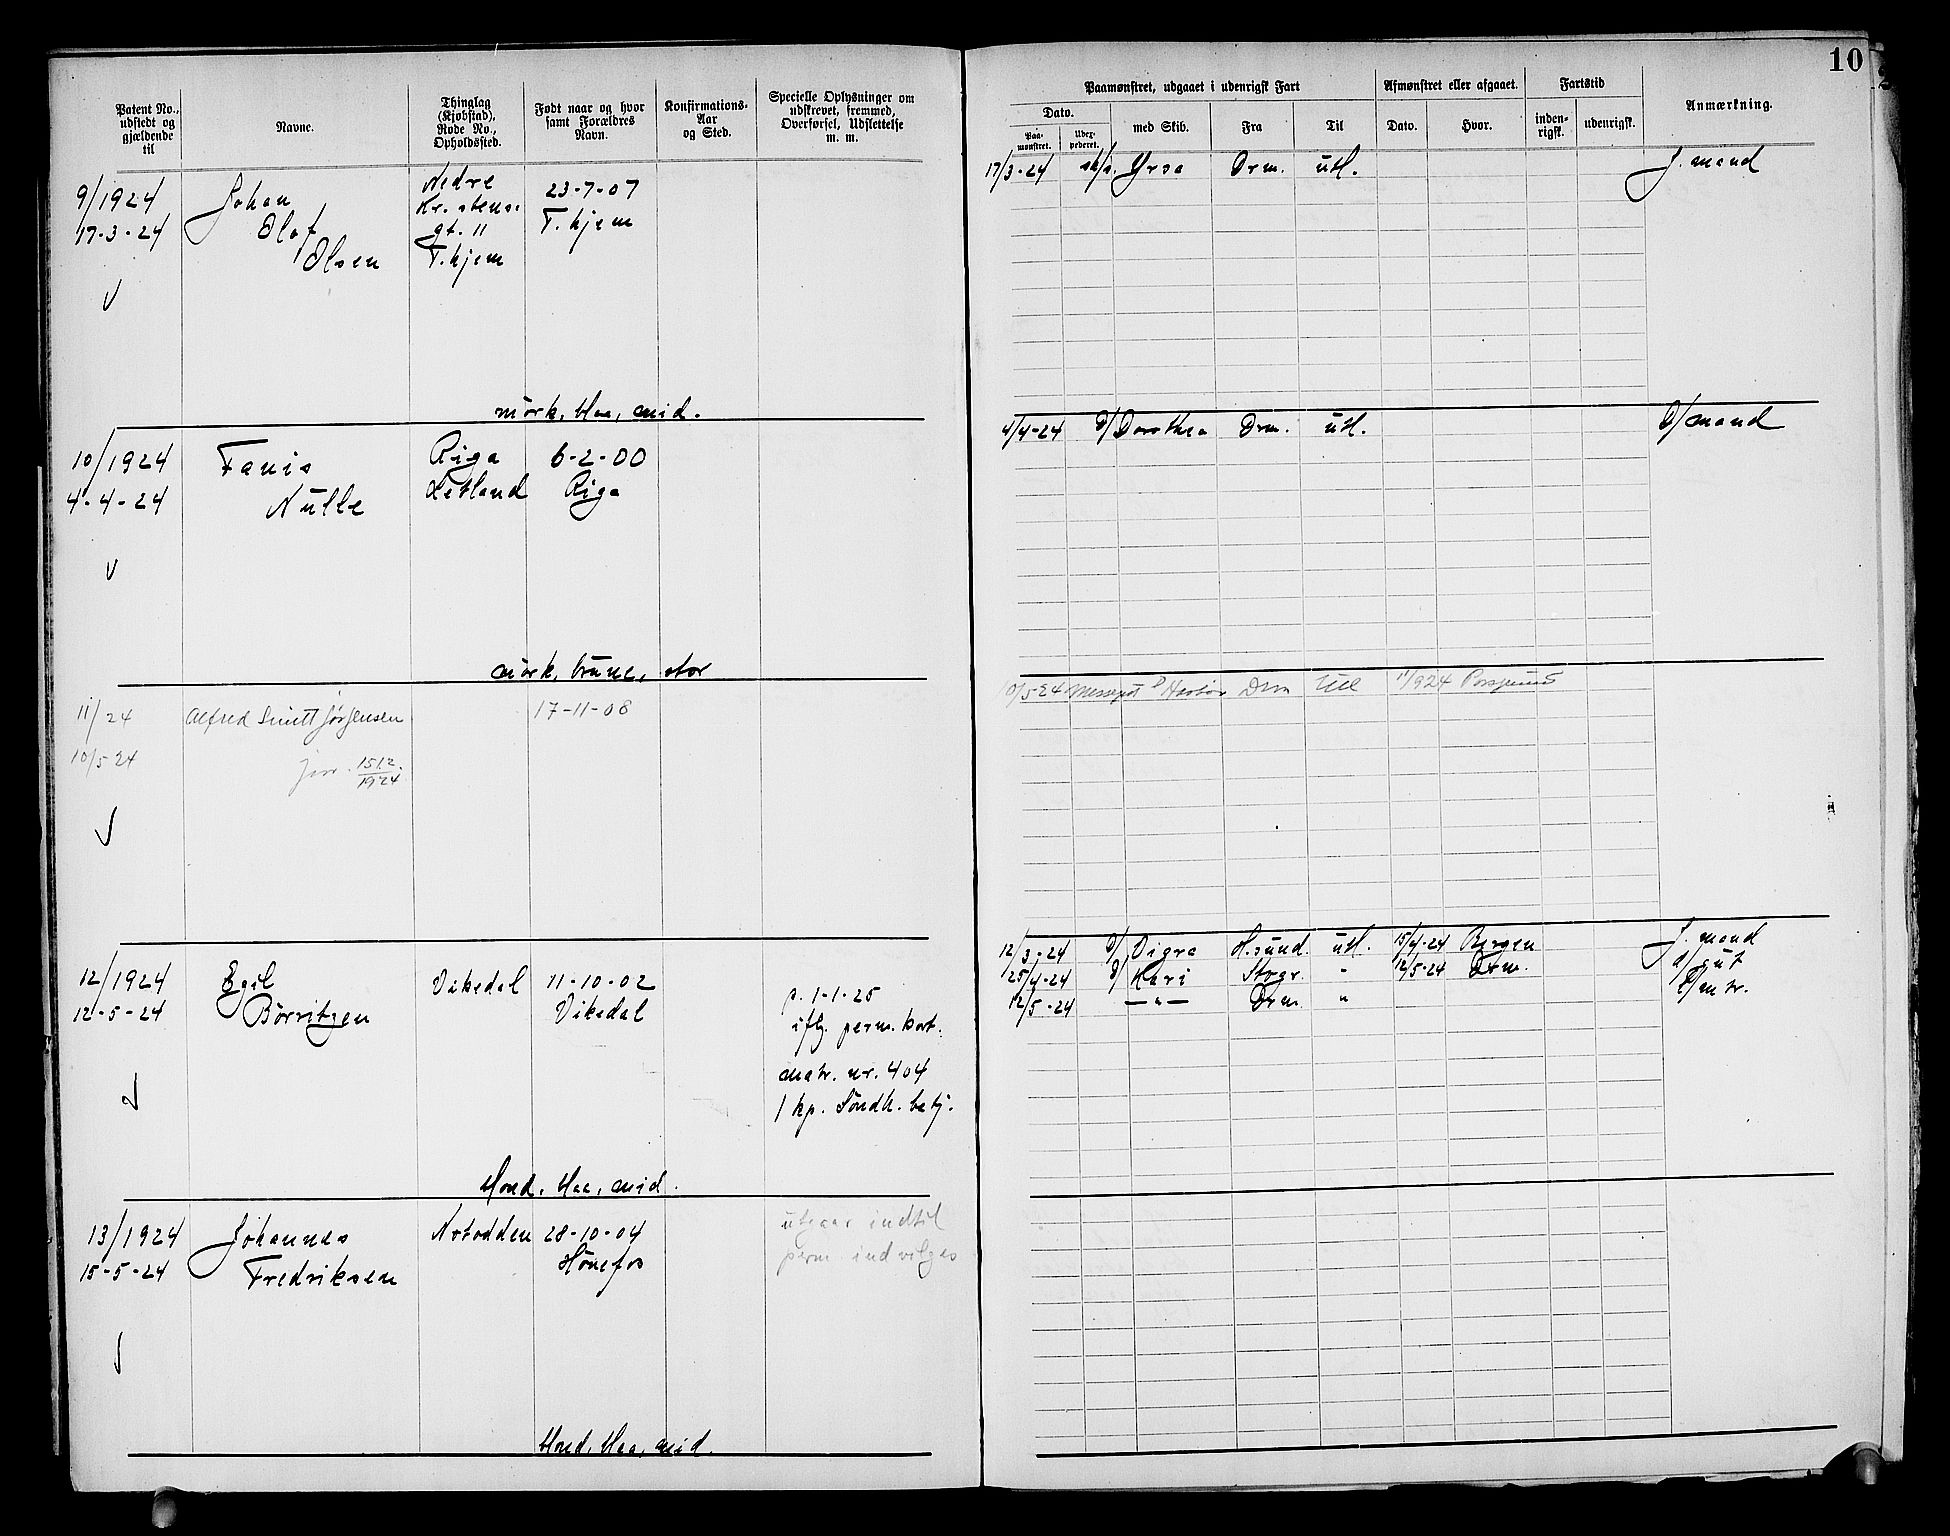 10
Patent No., udstedt og gjældende til
Navne.
Thinglag (Kjøbstad), Rode No., Opholdssted.
Født naar og hvor samt Forældres Navn.
Konfirmations-Aar og Sted.
Specielle Oplysninger om udskrevet, fremmed, Overførsel, Udslettelse m. m.
Paamønstret, udgaaet i udenrigsk Fart
Afmønstret eller afgaaet.
Fartstid
Anmærkning.
Dato.
med Skib.
Fra
Til
Dato.
Hvor.
inden-rigsk.
udenrigsk.
Paa-mønstret.
9/1924
17-3-24
Johan
Olaf
Olsen
Nedre
Kr. stens.
gt. 11
T.hjem
23-7-07
T.hjem
mörk, blaa, mid.
17/3-24 Yrsa Drm. utl. J. mand
10/1924
4-4-24
Nulle
Riga
Letland
6-2-00
Riga
mörk, brune, stor
4/4-24 D/ Dorothea Drm. utl. mand
11/24
10/5-24
Alfred Smitt Jørgensen
jnr. 1512/1924
17-11-08
10/5-24 Drm Utl 1/924 Porsgrund
12/1924
12-5-24
Egil
Börritzen
Vikedal
11-10-02
Vikedal
p. 1-1-25
iflg. perm. kort.
matr. nr. 404
1 kp. Söndh. batj.
blond, blaa, mid.
12/3-24 D/ Vigra H.sund. utl. 15/4-24 Bergen J. mand
25/4-24 D/ Kari Stvgr. " 12/5-24 Drm. gut
12/5-24 —"— Drm. "
13/1924
15-5-24
Johannes
Fredriksen
Notodden
28-10-04
Hönefos
utgaar indtil
perm. indvilges
blond, blaa, mid.